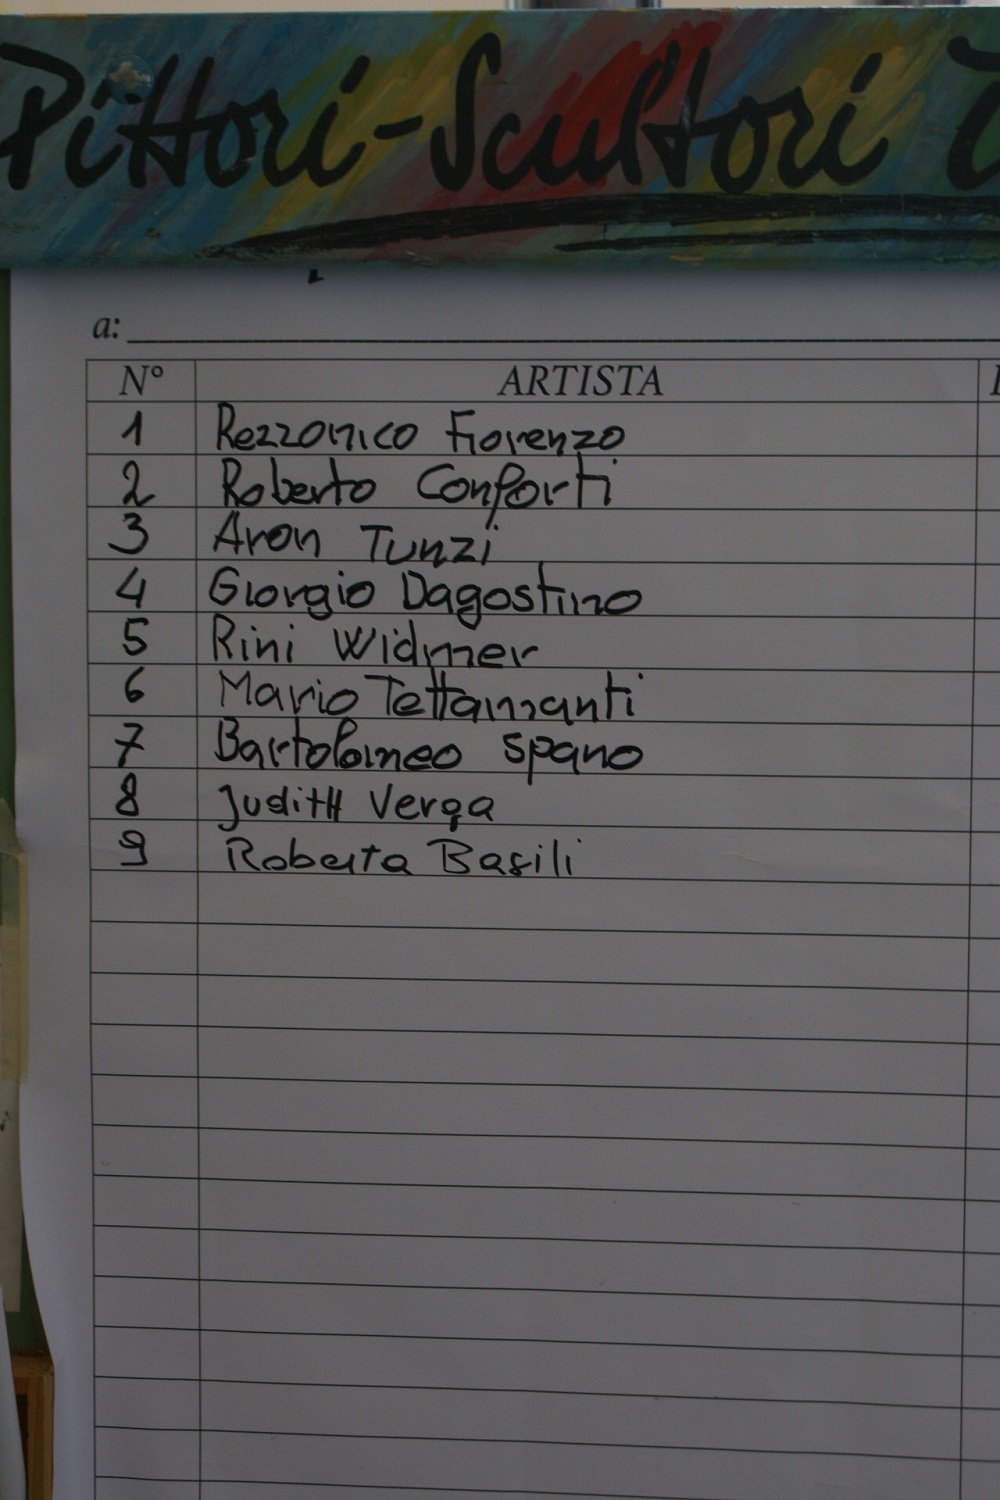 Pittori-Scultori
a:
N° ARTISTA
1 Rezzonico Fiorenzo
2 Roberto Conforti
3 Aron Tunzi
4 Giorgio Dagostino
5 Rini Widmer
6 Mario Tettamanti
7 Bartolomeo Spano
8 Judith Verga
9 Roberta Basili